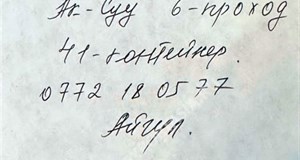 Ак-Суу 6-проход
41-контейнер.
0772 18 05 77
Айгул.